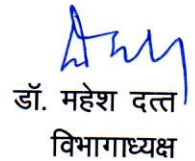 डॉ. महेश दत्त
विभागाध्यक्ष